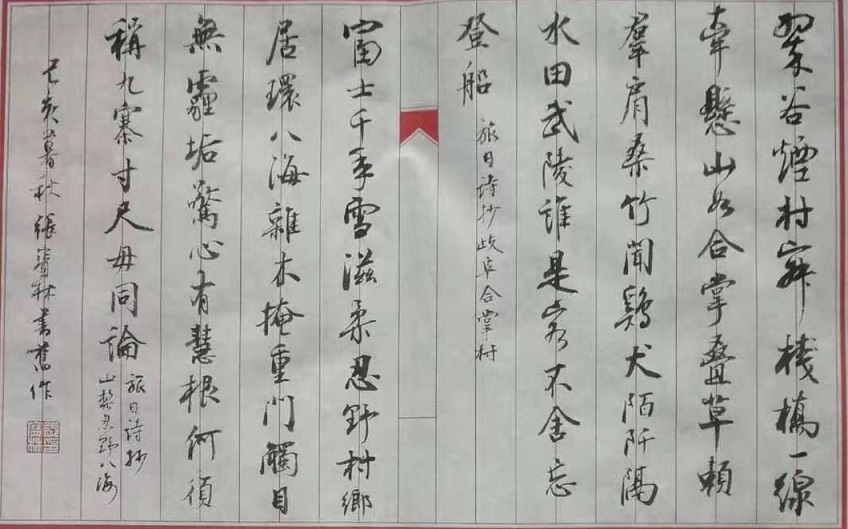 翠谷煙村棧橋一線
牽懸山如合掌疊草賴
羣肩桑竹聞鷄犬陌阡隔
水田武陵誰是客不舍忘
登船
旅日詩抄岐阜合掌村
富士千年雪滋柔忍野村鄉
居環八海雜木掩重門觸目
無霾垢驚心有慧根何須
稱九寨寸尺毋同論
旅日詩抄
山梨忍野八海
己亥暮秋張寶林書舊作